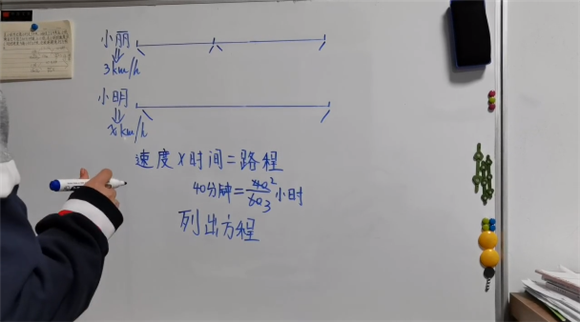 小丽
3km/h
小明
xkm/h
速度×时间=路程
40分钟=40/60 2/3小时
列出方程